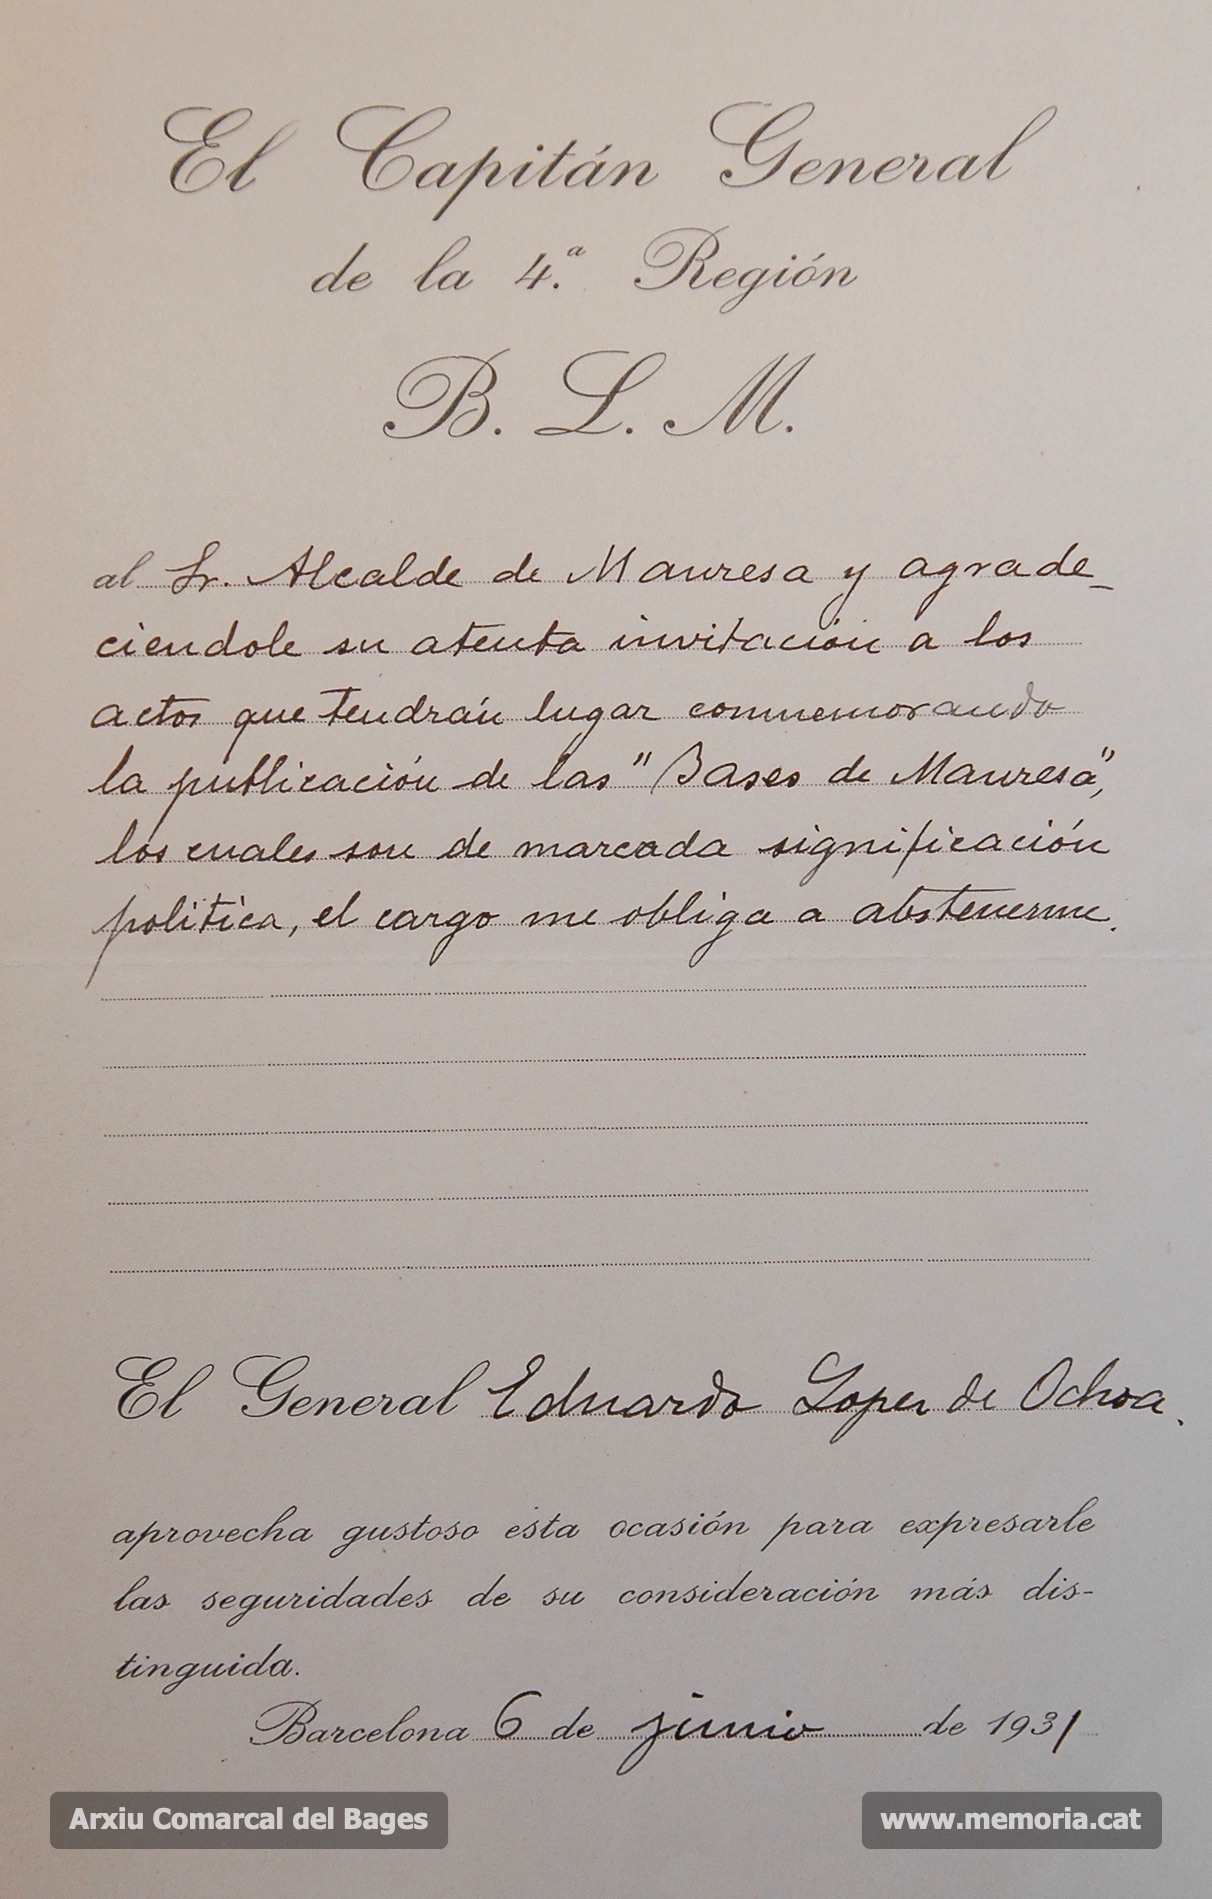 El Capitán General
de la 4.ª Región
B. L. M.
al Sr. Alcalde de Manresa y agrade-
ciendole su atenta invitación a los
actos que tendrán lugar conmemorando
la publicación de las "Bases de Manresa",
los cuales son de marcada significación
politica, el cargo me obliga a abstenerme.
El General Eduardo Lopez de Ochoa.
aprovecha gustoso esta ocasión para expresarle
las seguridades de su consideración más dis-
tinguida.
Barcelona 6 de junio de 1931
Arxiu Comarcal del Bages
www.memoria.cat